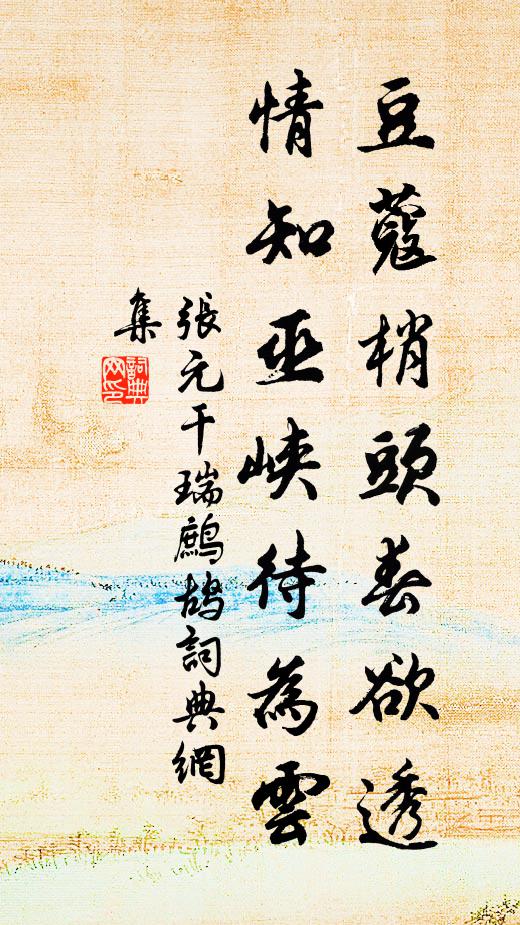 豆蔻梢頭春欲透
情知巫峽待為雲
張元干瑞鷓鴣詞典網
集
詞典網印